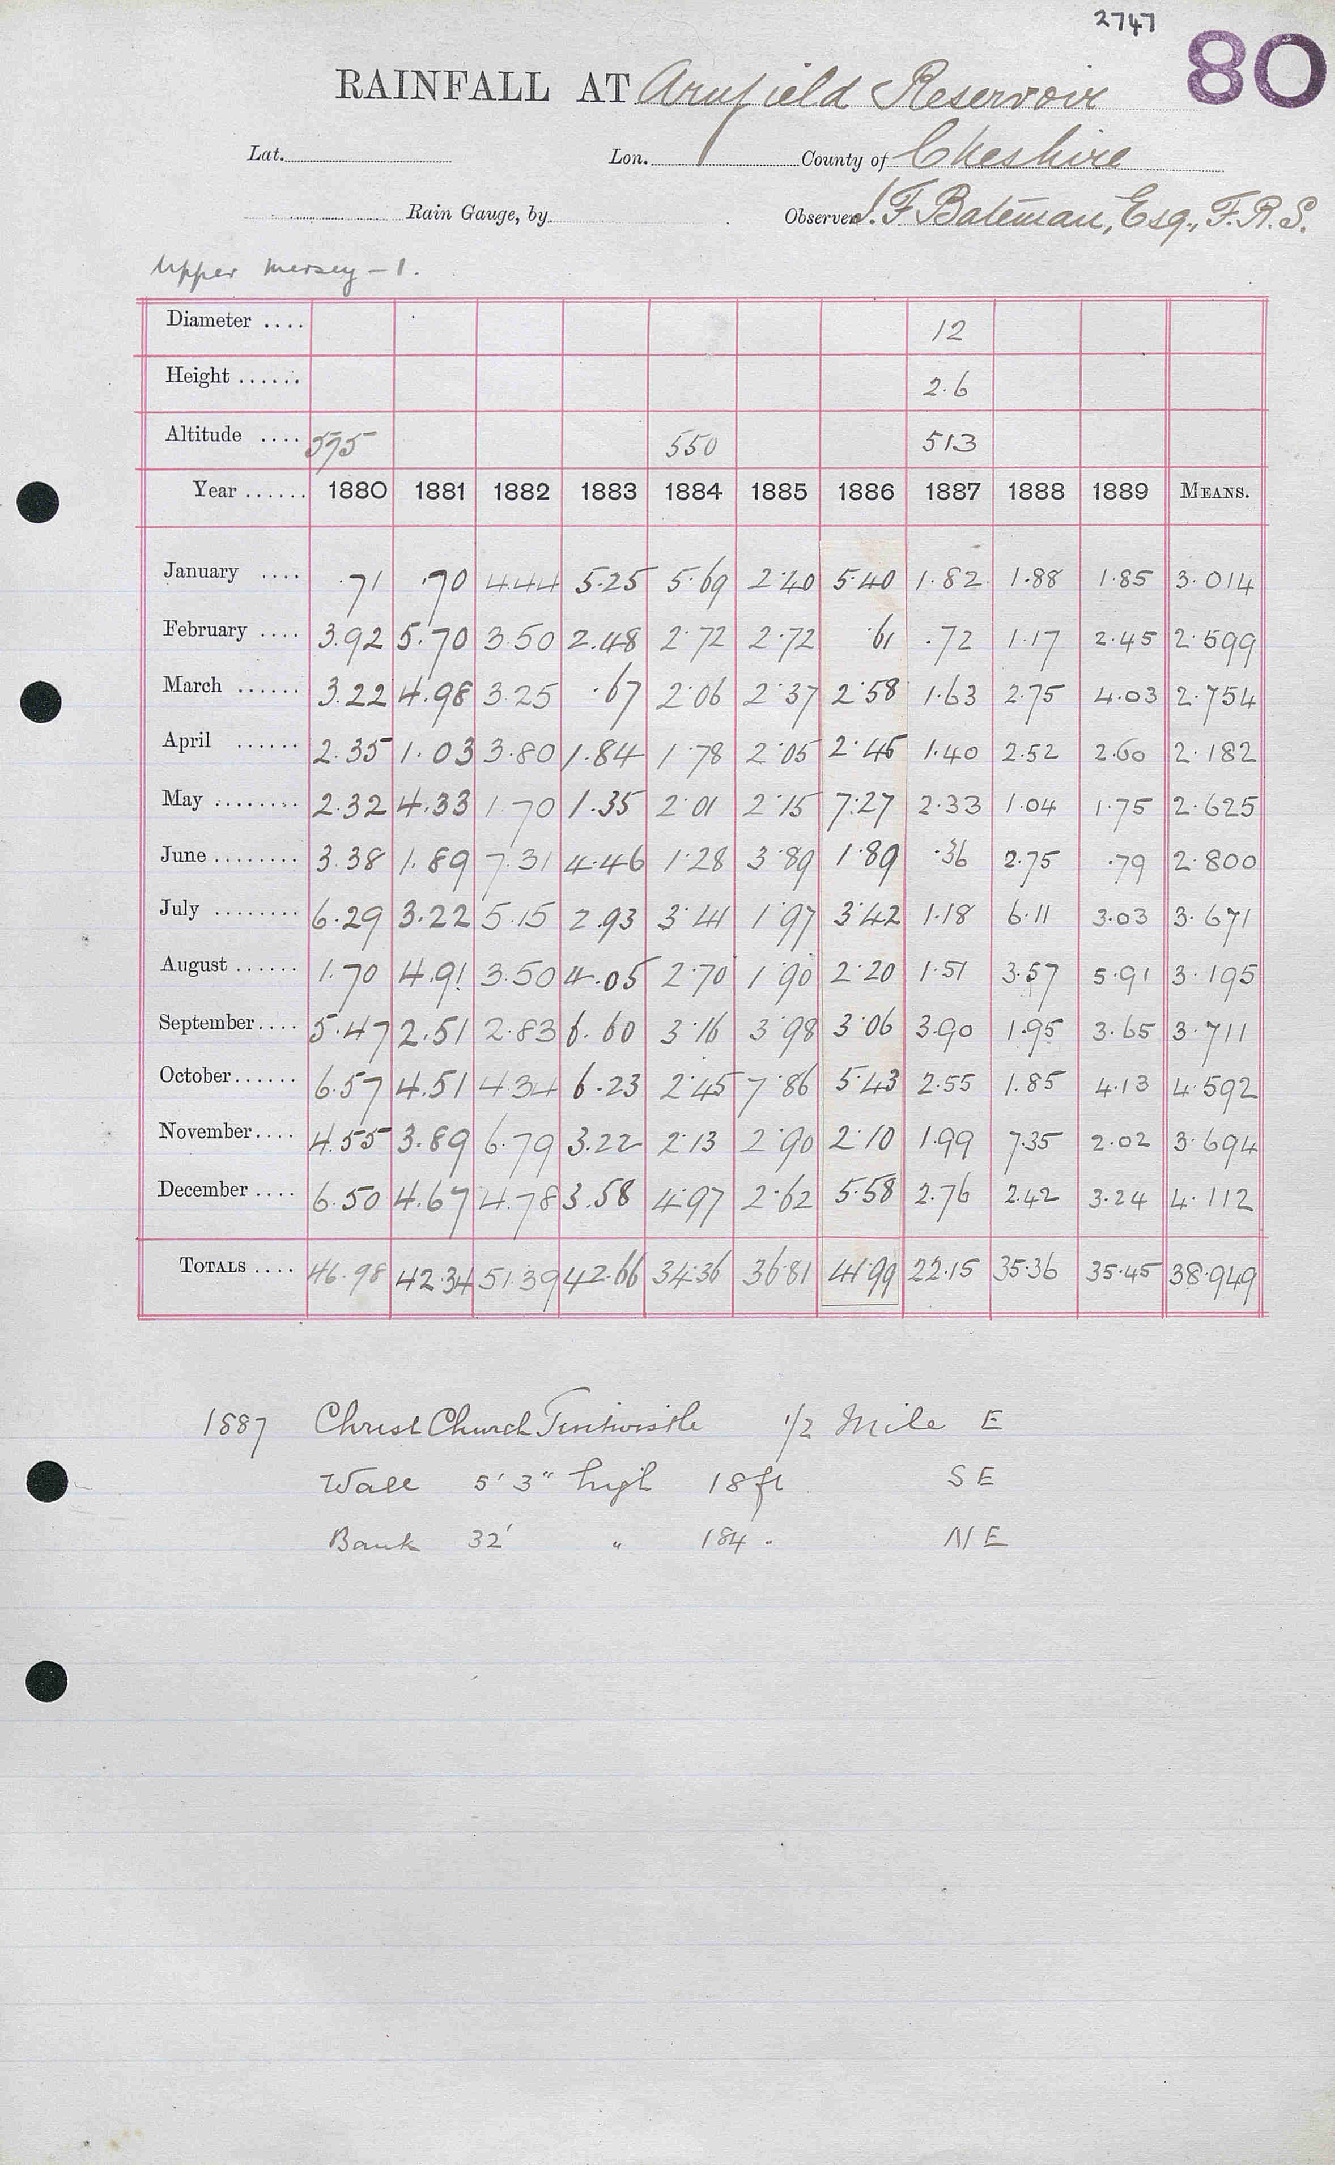 2747
80
RAINFALL AT Arnfield Reservoir
Lat. Lon. County of Cheshire
Rain Gauge, by Observer J. F. Bateman, Esq., F.R.S.
Upper Mersey – 1.
Diameter .... 12
Height ...... 2.6
Altitude .... 575 550 513
Year ...... 1880 1881 1882 1883 1884 1885 1886 1887 1888 1889 MEANS.
January .... .71 .70 4.44 5.25 5.69 2.40 5.40 1.82 1.88 1.85 3.014
February .... 3.92 5.70 3.50 2.48 2.72 2.72 .61 .72 1.17 2.45 2.599
March ...... 3.22 4.98 3.25 .67 2.06 2.37 2.58 1.63 2.75 4.03 2.754
April ...... 2.35 1.03 3.80 1.84 1.78 2.05 2.45 1.40 2.52 2.60 2.182
May ........ 2.32 4.33 1.70 1.35 2.01 2.15 7.27 2.33 1.04 1.75 2.625
June ........ 3.38 1.89 7.31 4.46 1.28 3.89 1.89 .36 2.75 .79 2.800
July ........ 6.29 3.22 5.15 2.93 3.41 1.97 3.42 1.18 6.11 3.03 3.671
August ...... 1.70 4.91 3.50 4.05 2.70 1.90 2.20 1.51 3.57 5.91 3.195
September.... 5.47 2.51 2.83 6.60 3.16 3.98 3.06 3.90 1.95 3.65 3.711
October...... 6.57 4.51 4.34 6.23 2.45 7.86 5.43 2.55 1.85 4.13 4.592
November.... 4.55 3.89 6.79 3.22 2.13 2.90 2.10 1.99 7.35 2.02 3.694
December .... 6.50 4.67 4.78 3.58 4.97 2.62 5.58 2.76 2.42 3.24 4.112
TOTALS .... 46.98 42.34 51.39 42.66 34.36 36.81 41.99 22.15 35.36 35.45 38.949
1887 Christ Church Tintwistle 1/2 Mile E
Wall 5' 3" high 18 ft SE
Bank 32' " 184 " NE